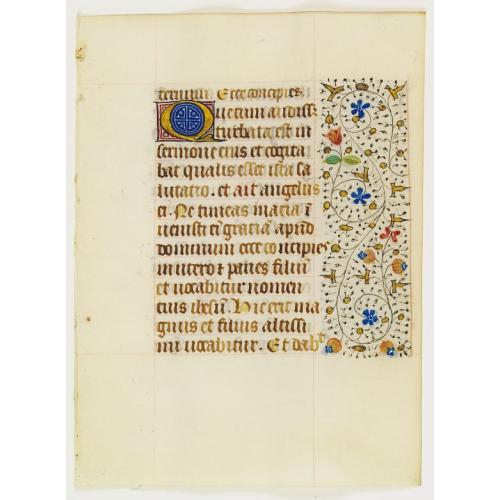 terminu. Ecce concipies.
Que cum audiss
turbata est in
sermone eius et cogita
bat qualis esset ista sa
lutatio. et ait angelus
ei. Ne timeas maria i
uenisti eī gratiā apud
dominum ecce concipies
in utero ⁊ paries filiū
et uocabitur nomen
eius ihesū. Hic erit ma
gnus et filius altissi
mi uocabitur. Et dabᵗ